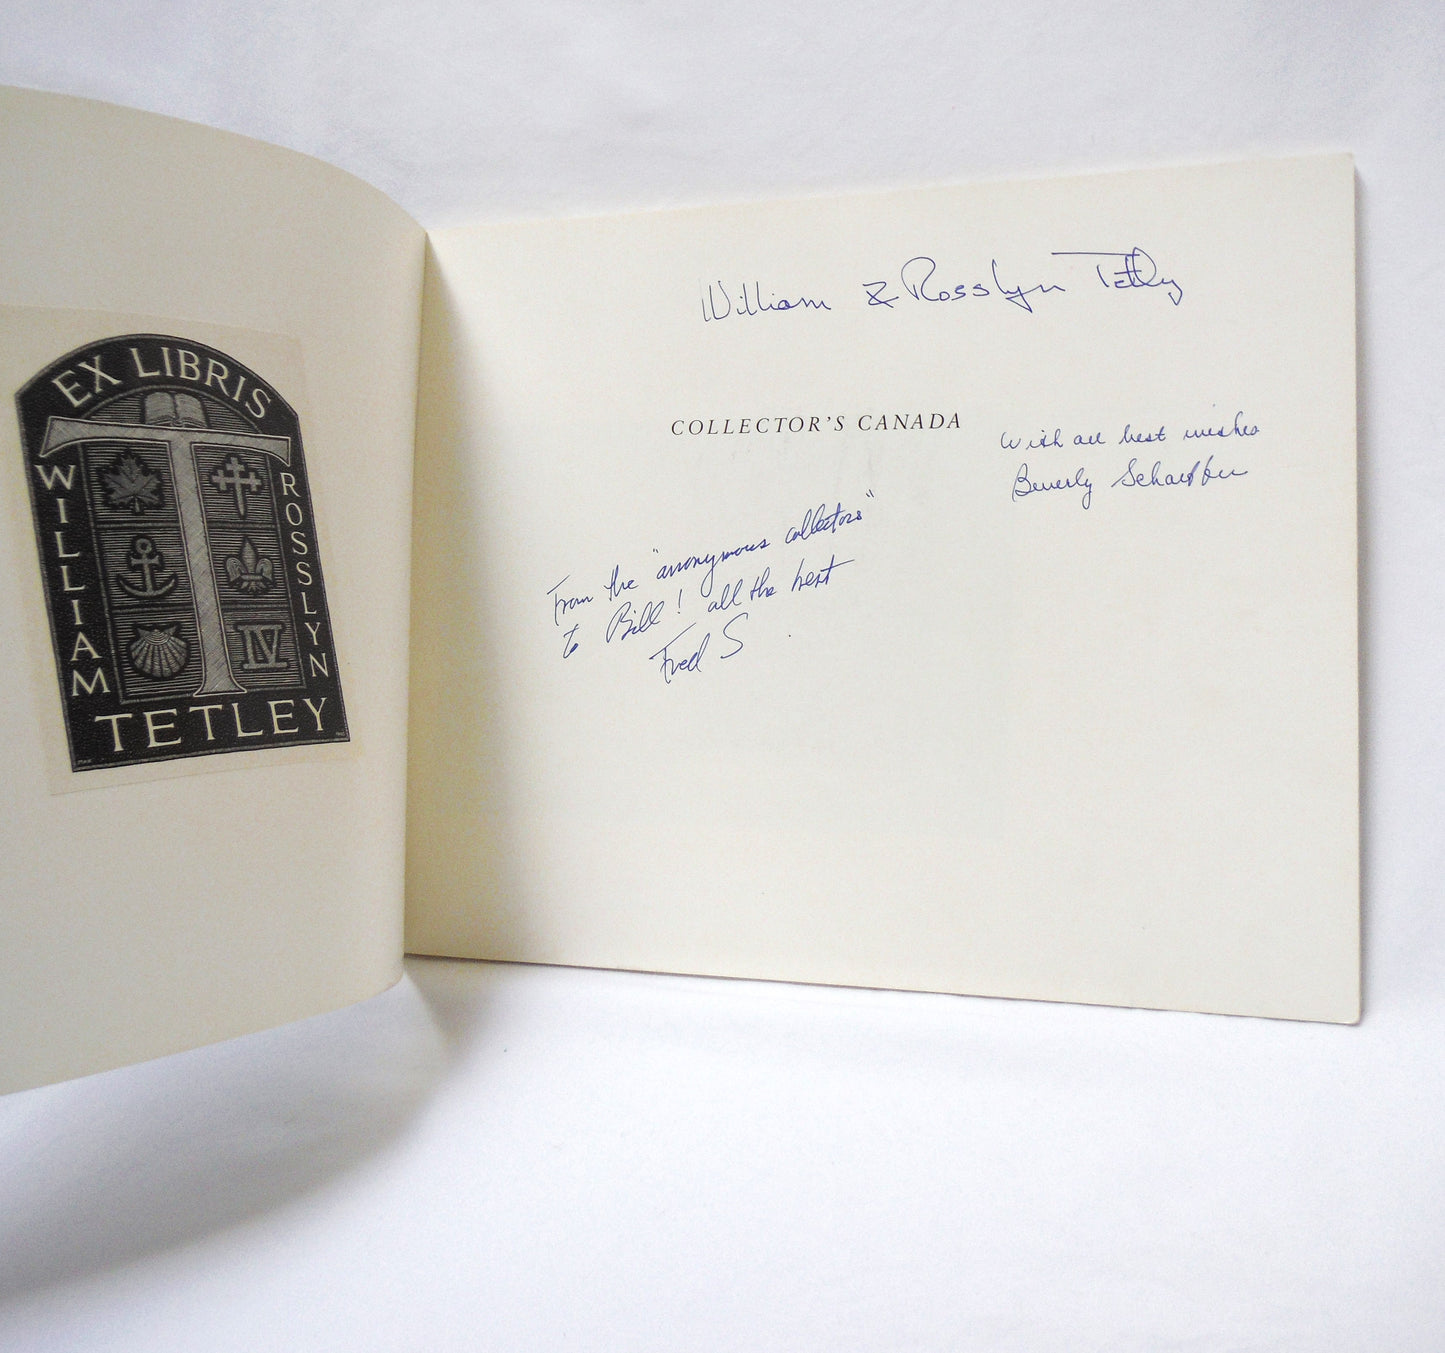 EX LIBRIS
WILLIAM
ROSSLYN
IV
TETLEY
William & Rosslyn Tetley
COLLECTOR'S CANADA
With all best wishes
Beverly Schaeffer
From the "anonymous collectors"
to Bill! all the best
Fred S.